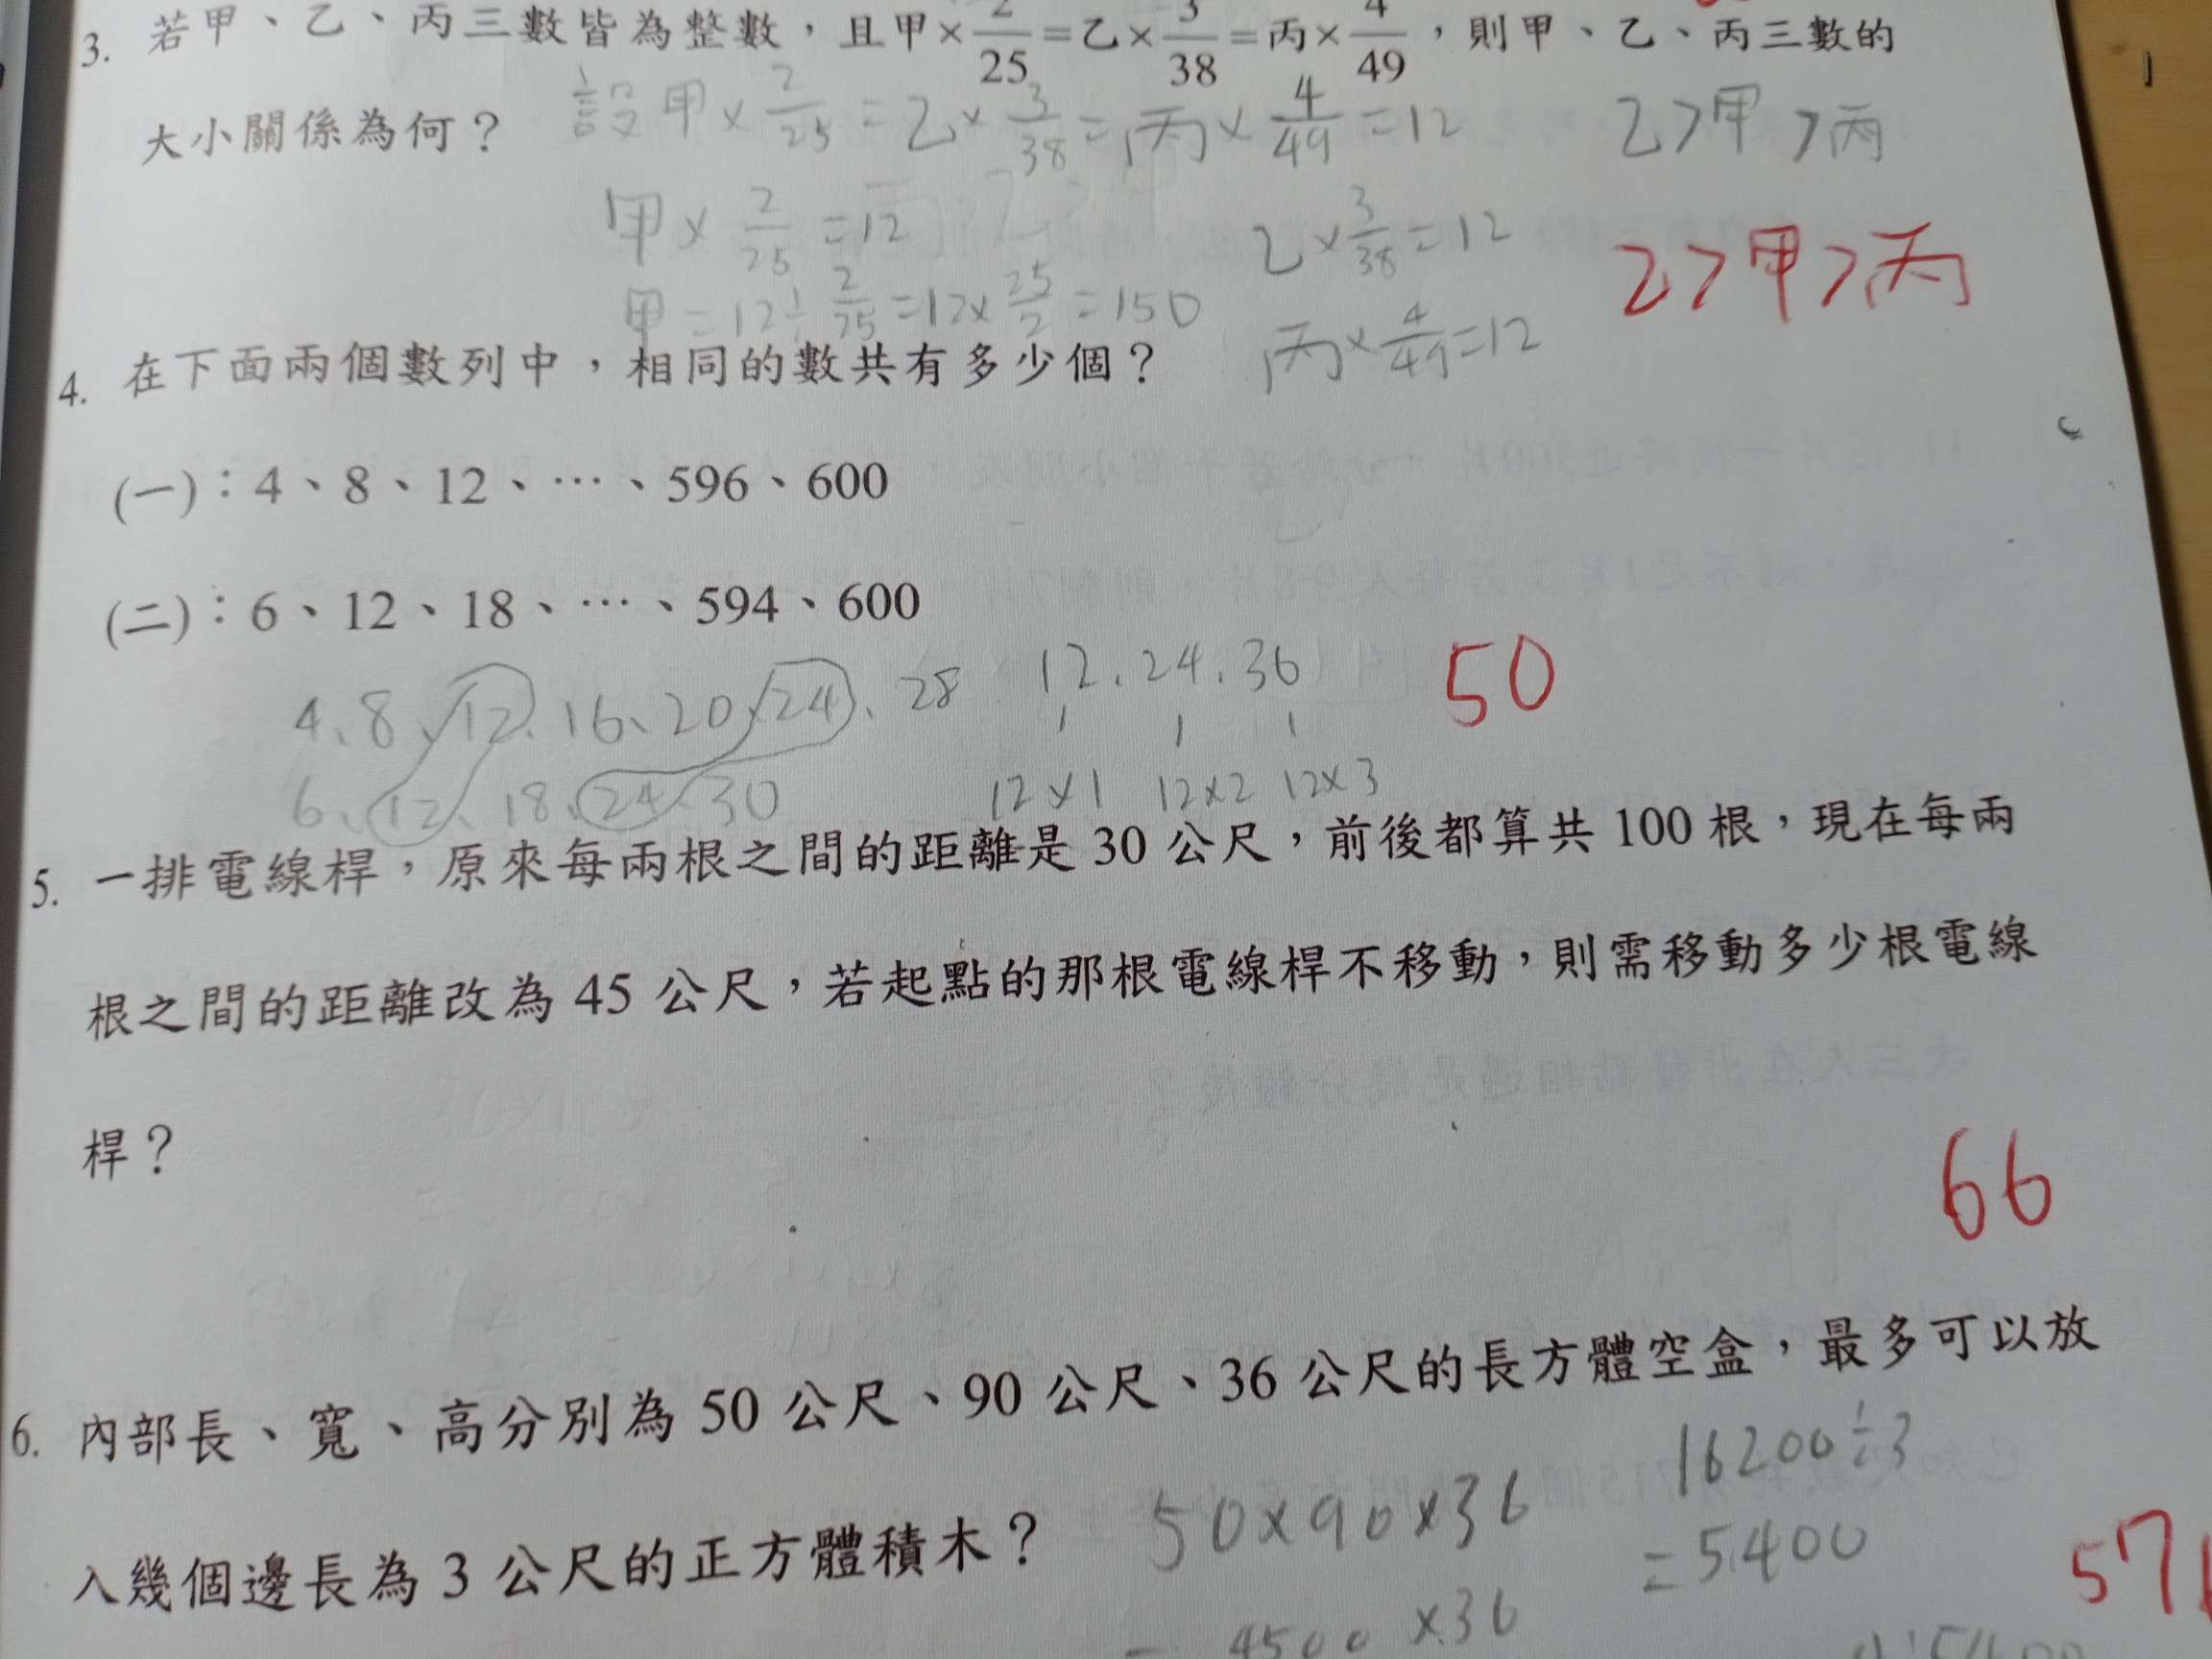 3. 若甲、乙、丙三數皆為整數，且甲×2/25＝乙×3/38＝丙×4/49，則甲、乙、丙三數的
設甲×2/25=乙×3/38=丙×4/49=12
乙>甲>丙
大小關係為何？
甲×2/25=12
乙×3/38=12
乙>甲>丙
甲=12÷2/25=12×25/2=150
丙×4/49=12
4. 在下面兩個數列中，相同的數共有多少個？
(一)：4、8、12、…、596、600
(二)：6、12、18、…、594、600
4、8、12、16、20、24、28
12、24、36
50
6、12、18、24、30
12×1 12×2 12×3
5. 一排電線桿，原來每兩根之間的距離是30公尺，前後都算共100根，現在每兩
根之間的距離改為45公尺，若起點的那根電線桿不移動，則需移動多少根電線
桿？
66
6. 內部長、寬、高分別為50公尺、90公尺、36公尺的長方體空盒，最多可以放
16200÷3
入幾個邊長為3公尺的正方體積木？
50×90×36
=5400
57
4500×36